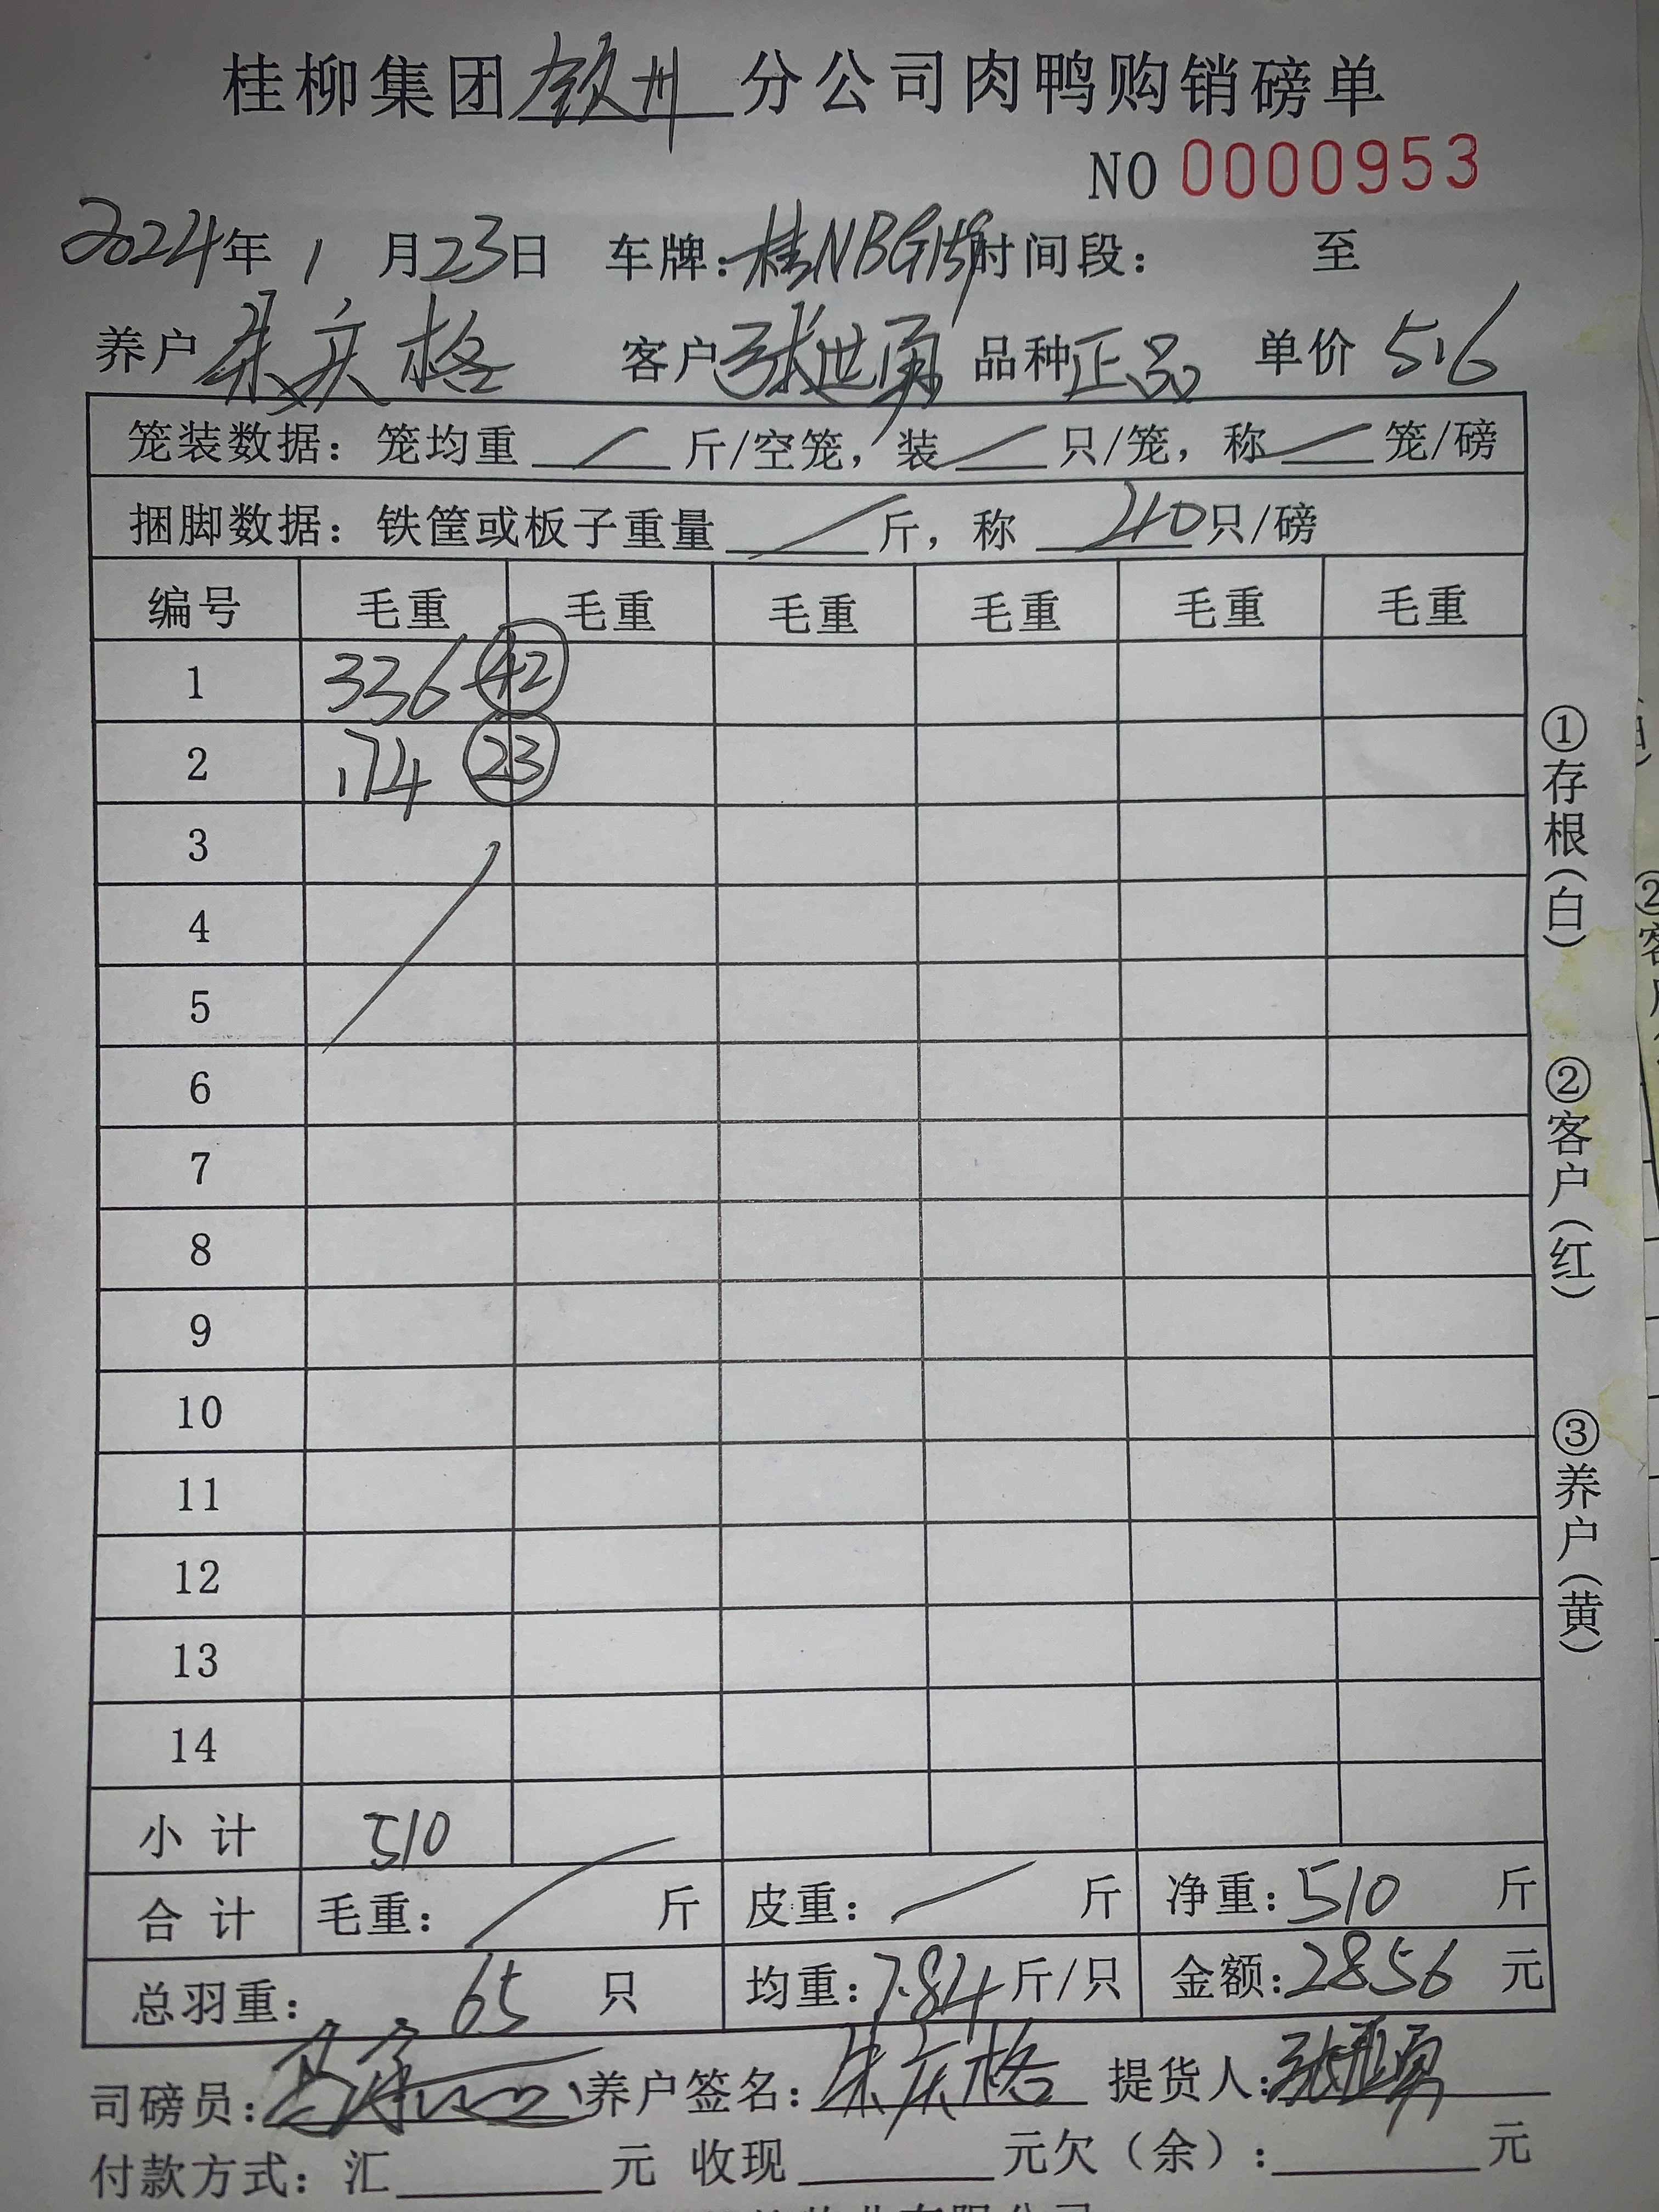 桂柳集团钦州分公司肉鸭购销磅单
NO 0000953
2024年1月23日 车牌:桂NBG 时间段: 至
养户 朱庆格 客户 张世勇 品种 正品 单价 5.6
笼装数据: 笼均重 / 斤/空笼, 装 / 只/笼, 称 / 笼/磅
捆脚数据: 铁筐或板子重量 / 斤, 称 210 只/磅
编号 毛重 毛重 毛重 毛重 毛重 毛重
1 336 42
2 174 23
3
4
5
6
7
8
9
10
11
12
13
14
小计 510
合计 毛重: / 斤 皮重: / 斤 净重: 510 斤
总羽重: 65 只 均重: 7.84 斤/只 金额: 2856 元
司磅员: 养户签名: 朱庆格 提货人: 张世勇
付款方式: 汇 元 收现 元 欠(余): 元
①存根(白) ②客户(红) ③养户(黄)